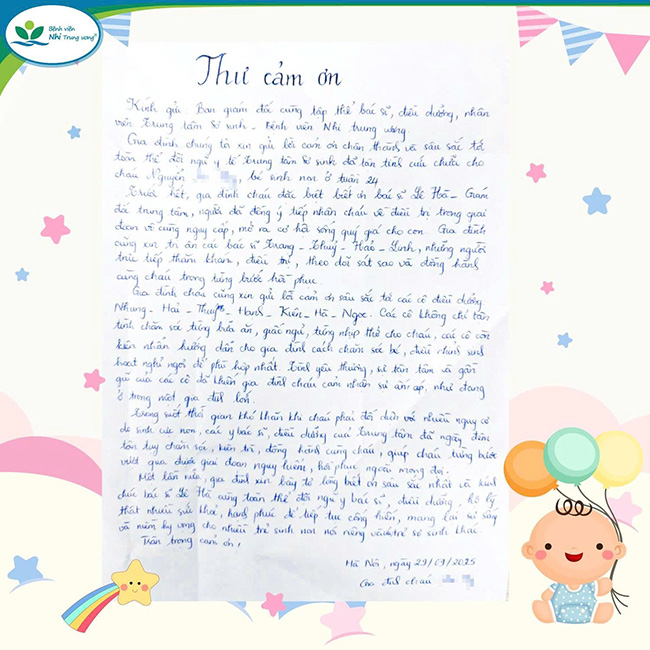 Bệnh viện
Nhi Trung ương
Thư cảm ơn
Kính gửi: Ban giám đốc cùng tập thể bác sĩ, điều dưỡng, nhân
viên Trung tâm Sơ sinh - Bệnh viên Nhi trung ương
Gia đình chúng tôi xin gửi lời cảm ơn chân thành và sâu sắc tới
toàn thể đội ngũ y tế Trung tâm Sơ sinh đã tận tình cứu chữa cho
cháu Nguyễn, bé sinh non ở tuần 24
Trước hết, gia đình cháu đặc biệt biết ơn bác sĩ Lê Hà - Giám
đốc trung tâm, người đã đồng ý tiếp nhận cháu về điều trị trong giai
đoạn vô cùng nguy cấp, mở ra cơ hội sống quý giá cho con. Gia đình
cũng xin tri ân các bác sĩ Trang - Thuỷ - Hảo - Linh, những người
trực tiếp thăm khám, điều trị, theo dõi sát sao và đồng hành
cùng cháu trong từng bước hồi phục.
Gia đình cháu cũng xin gửi lời cảm ơn sâu sắc tới các cô điều dưỡng
Nhung - Hai - Thuỷ - Hạnh - Kiên - Hà - Ngọc. Các cô không chỉ tận
tình chăm sóc từng bữa ăn, giấc ngủ, từng nhịp thở cho cháu, các cô còn
kiên nhẫn hướng dẫn cho gia đình cách chăm sóc bé, điều chỉnh sinh
hoạt nghỉ ngơi để phù hợp nhất. Tình yêu thương, sự tận tâm và gần
gũi của các cô đã khiến gia đình cháu cảm nhận sự ấm áp, như đang
ở trong một gia đình lớn.
Trong suốt thời gian khó khăn khi cháu phải đối diện với nhiều nguy cơ
do sinh cực non, các y bác sĩ, điều dưỡng của Trung tâm đã ngày đêm
tận tuỵ chăm sóc, kiên trì, đồng hành cùng cháu, giúp cháu từng bước
vượt qua được giai đoạn nguy hiểm, hồi phục ngoài mong đợi.
Một lần nữa, gia đình xin bày tỏ lòng biết ơn sâu sắc nhất và kính
chúc bác sĩ Lê Hà cùng toàn thể đội ngũ y bác sĩ, điều dưỡng, hộ lý
thật nhiều sức khoẻ, hạnh phúc để tiếp tục cống hiến, mang lại sự sống
và niềm hy vọng cho nhiều trẻ sinh non nói riêng và trẻ sơ sinh khác.
Trân trọng cảm ơn,
Hà Nội, ngày 29/09/2025
Gia đình cháu